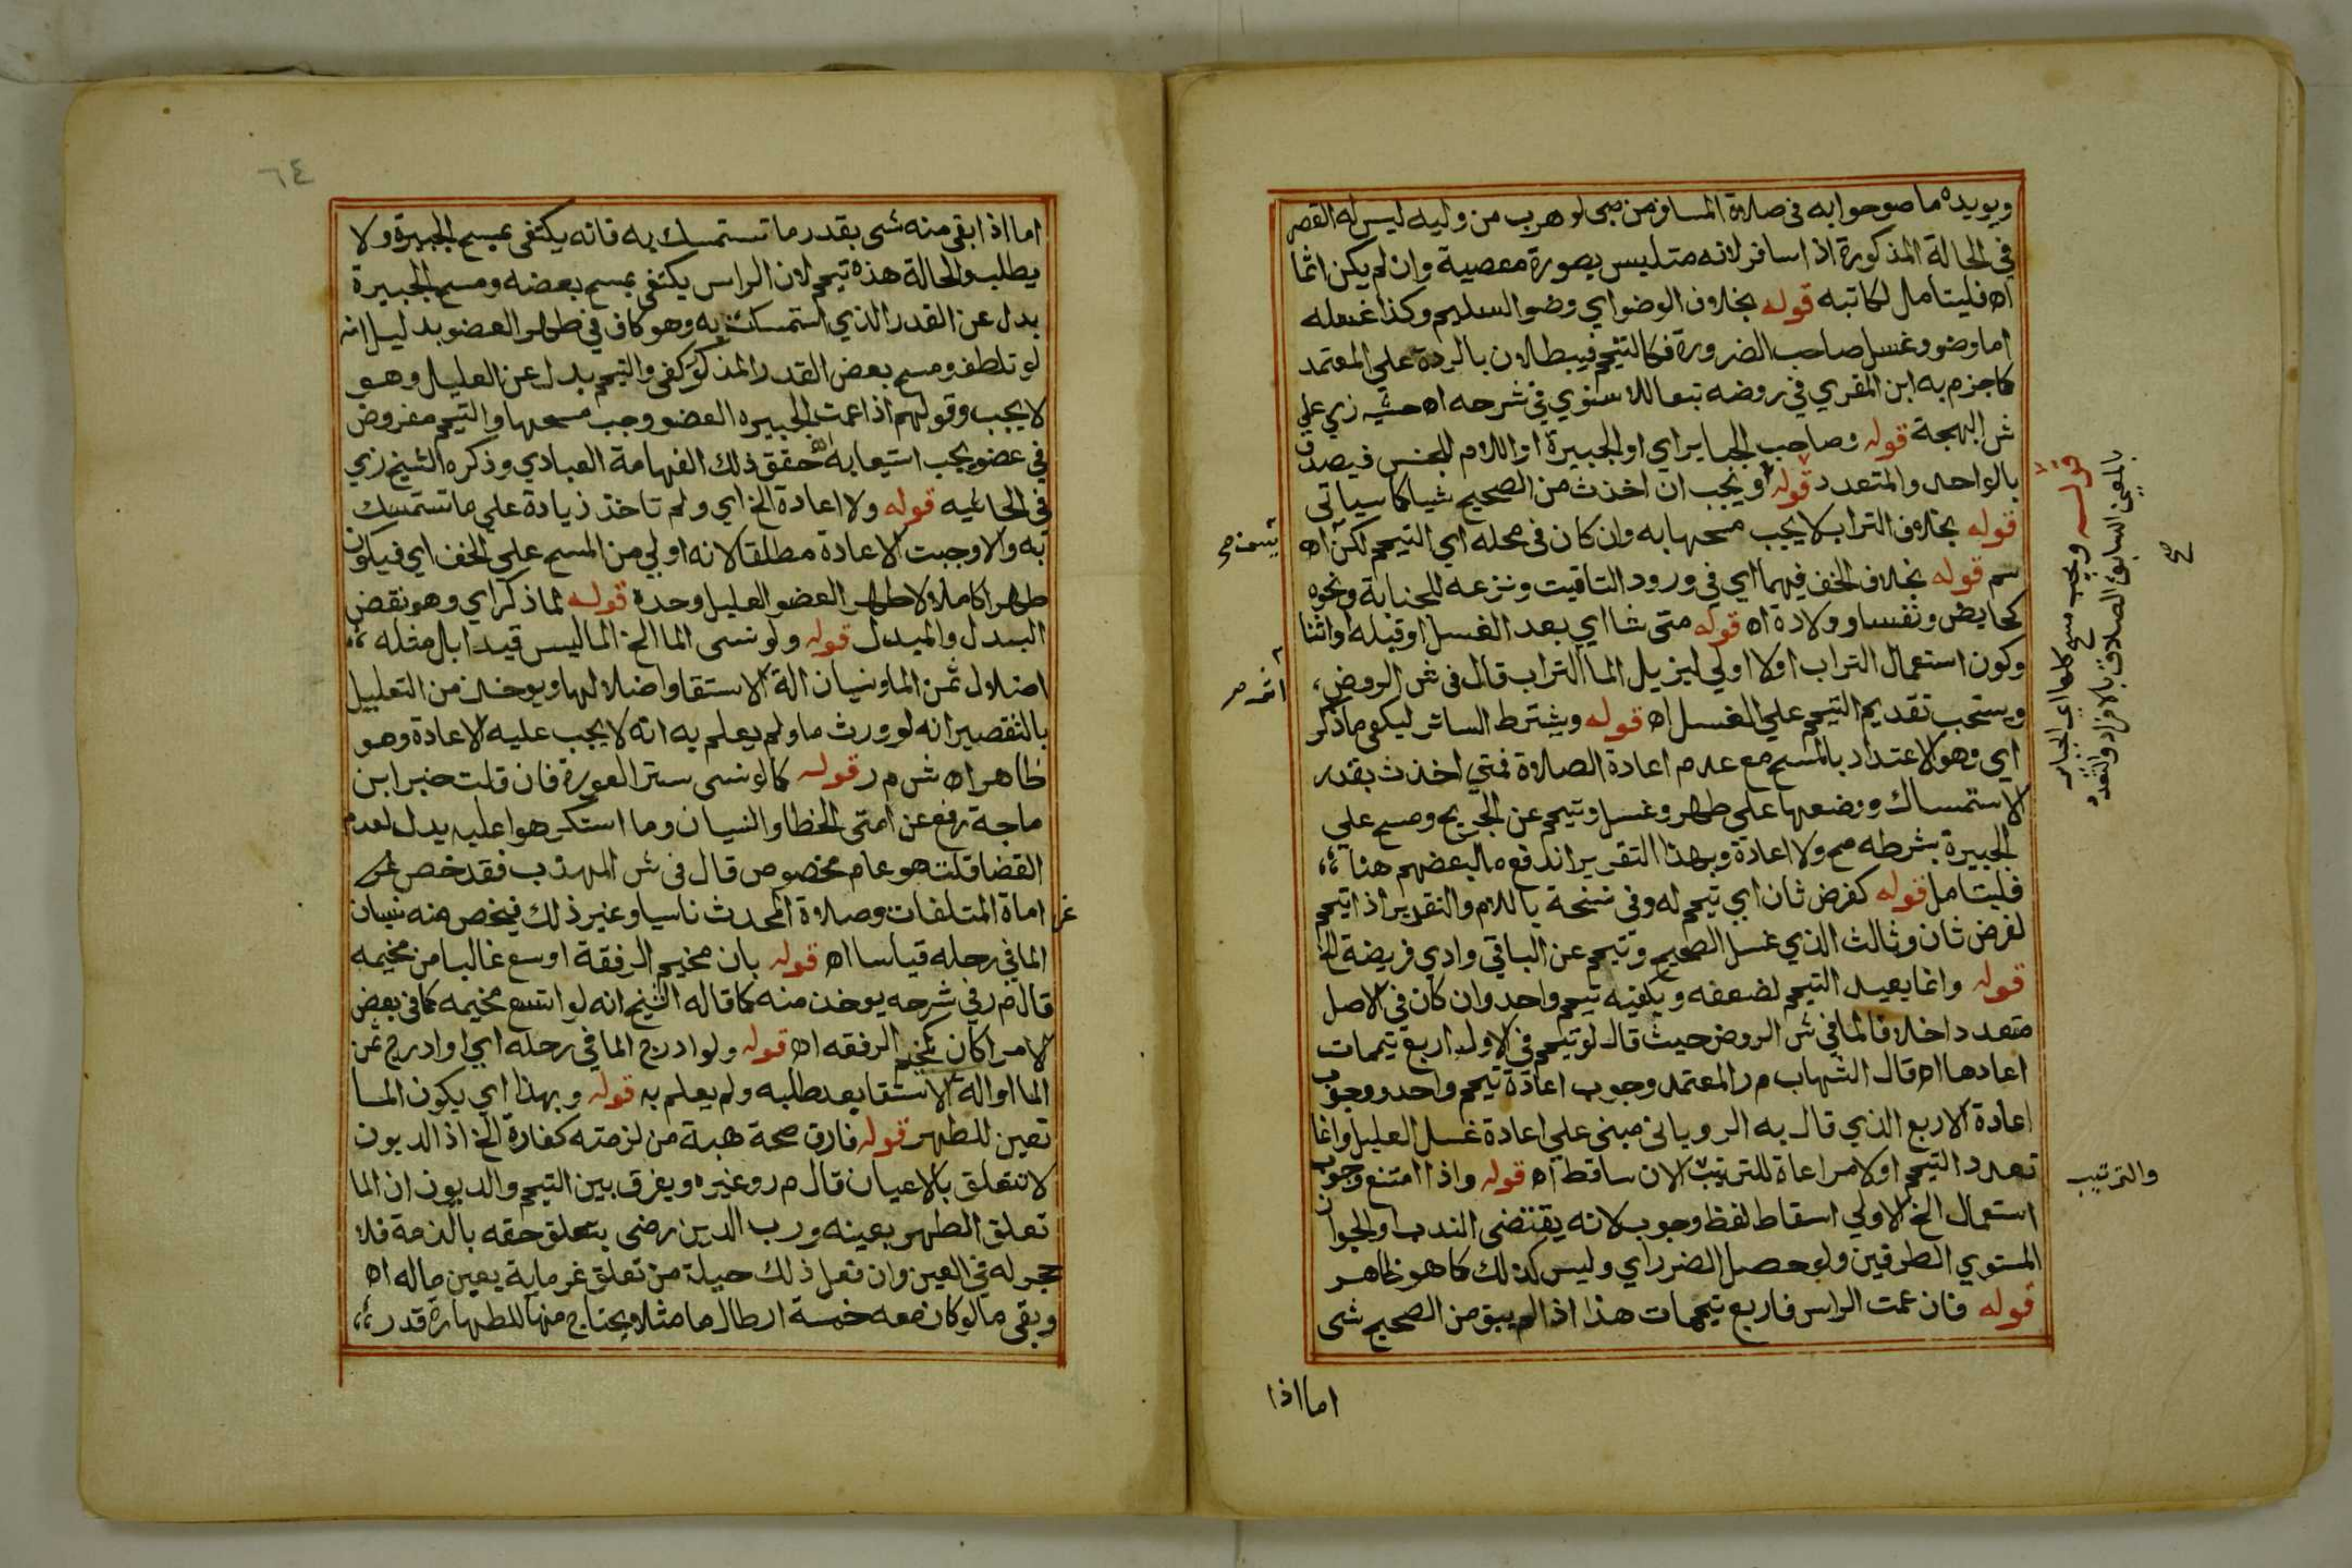 ويويده ما صوحوا به في صلاة المسافر من صبي لو هرب من وليه ليس له القصر
في الحالة المذكورة اذا سافر لانه متلبس بصورة معصية وان لم يكن اثما
اه فليتامل لكاتبه قوله بخلاف الوضو اي وضو السليم وكذا غسله
اما وضو وغسل صاحب الضرورة فكالتيمم فيبطلان بالردة علي المعتمد
كما جزم به ابن المقري في روضه تبعا للاسنوي في شرحه اه حشيه زي علي
ش البهجة قوله وصاحب الجباير اي او الجبيرة او اللام للجنس فيصدق
بالواحد والمتعدد قوله او نجب ان اخذت من الصحيح شيا كما سياتي
قوله بخلاف التراب لا يجب مسحها به وان كان في محله اي التيمم لكن اه
سم قوله بخلاف الخف فيهما اي في ورود التاقيت ونزعه للجنابة ونحوه
كحايض ونفسا وولادة اه قوله متي شا اي بعد الغسل او قبله او اثنا
وكون استعمال التراب اولا اولي ليزيل الما التراب قال في ش الروض
ويستحب تقديم التيمم علي الغسل اه قوله ويشترط الساتر ليكفي ما ذكر
اي وهو الاعتداد بالمسح مع عدم اعادة الصلاة فمتي اخذت بقدر
الاستمساك ووضعها علي طهر وغسل وتيمم عن الجريح ومسح علي
الجبيرة بشرطه صح ولا اعادة وبهذا التقرير اندفع ما لبعضهم هنا
فليتامل قوله كفرض ثان اي تيمم له وفي نسخة باللام والتقدير اذا تيمم
لفرض ثان وثالث الذي غسل الصحيح وتيمم عن الباقي وادي فريضة الخ
قوله وانما يعيد التيمم لضعفه ويكفيه تيمم واحد وان كان في الاصل
متعددا خلافا لما في ش الروض حيث قال لو تيمم في الاول اربع تيممات
اعادها اه قال الشهاب م ر المعتمد وجوب اعادة تيمم واحد ووجوب
اعادة الاربع الذي قال به الروياني مبني علي اعادة غسل العليل وانما
تعدد التيمم اولا مراعاة للترتيب الان ساقط اه قوله واذا امتنع وجوب
استعمال الخ الاولي اسقاط لفظ وجوب لانه يقتضي الندب او الجواز
المستوي الطرفين ولو حصل الضرر اي وليس كذلك كما هو ظاهر
قوله فان عمت الراس فاربع تيممات هذا اذا لم يبق من الصحيح شي
اما اذا
قوله ويجب مسح كلها اي الجباير
بالمعني السابق الصادق بالافراد والتعدد
صح
والترتيب
٦٤
اما اذا بقي منه شي بقدر ما تستمسك به فانه يكتفي بمسح الجبيرة ولا
يطلب والحالة هذه تيمم لان الراس يكتفي بمسح بعضه ومسح الجبيرة
بدل عن القدر الذي استمسكت به وهو كاف في طهر العضو بدليل انه
لو تلطف ومسح بعض القدر المذكور كفي والتيمم بدل عن العليل وهو
لا يجب وقولهم اذا عمت الجبيره العضو وجب مسحها والتيمم مفروض
في عضو يجب استيعابه اه حقق ذلك الفهامة العبادي وذكره الشيخ زي
في الحاشيه قوله ولا اعادة الخ اي ولم تاخذ زيادة علي ما تستمسك
به والا وجبت الاعادة مطلقا لانه اولي من المسح علي الخف اي فيكون
طهرا كاملا ولا طهر العضو العليل وحدة قوله لما ذكر اي وهو نقض
البدل والمبدل قوله ولو نسي الما الخ الما ليس قيدا بل مثله
اضلال ثمن الما ونسيان الة الاستقا واضلالها ويوخذ من التعليل
بالتقصير انه لو ورث ما ولم يعلم به انه لا يجب عليه الاعادة وهو
ظاهر اه ش م ر قوله كما لو نسي ستر العورة فان قلت خبر ابن
ماجة رفع عن امتي الخطا والنسيان وما استكرهوا عليه يدل لعدم
القضا قلت هو عام مخصوص قال في ش المهذب فقد خص
غرامة المتلفات وصلاة المحدث ناسيا وغير ذلك فيخص منه نسيان
الما في رحله قياسا اه قوله بان مخيم الرفقة اوسع غالبا من مخيمه
قال م ر في شرحه يوخذ منه كما قاله الشيخ انه لو اتسع مخيمه كما في بعض
الامرا كان كمخيم الرفقه اه قوله ولو ادرج الما في رحله اي او ادرج ثمن
الما او الة الاستقا بعد طلبه ولم يعلم به قوله وبهذا اي يكون الما
تعين للطهر قوله فارق صحة هبة من لزمته كفارة الخ اذ الديون
لا تتعلق بالاعيان قال م ر وغيره ويفرق بين التيمم والديون ان الما
تعلق الطهر بعينه ورب الدين رضي بتعلق حقه بالذمة فلا
حجر له في العين وان فعل ذلك حيلة من تعلق غرمايه بعين ماله اه
وبقي ما لو كان معه خمسة ارطال ما مثلا ويحتاج منها للطهارة قدر